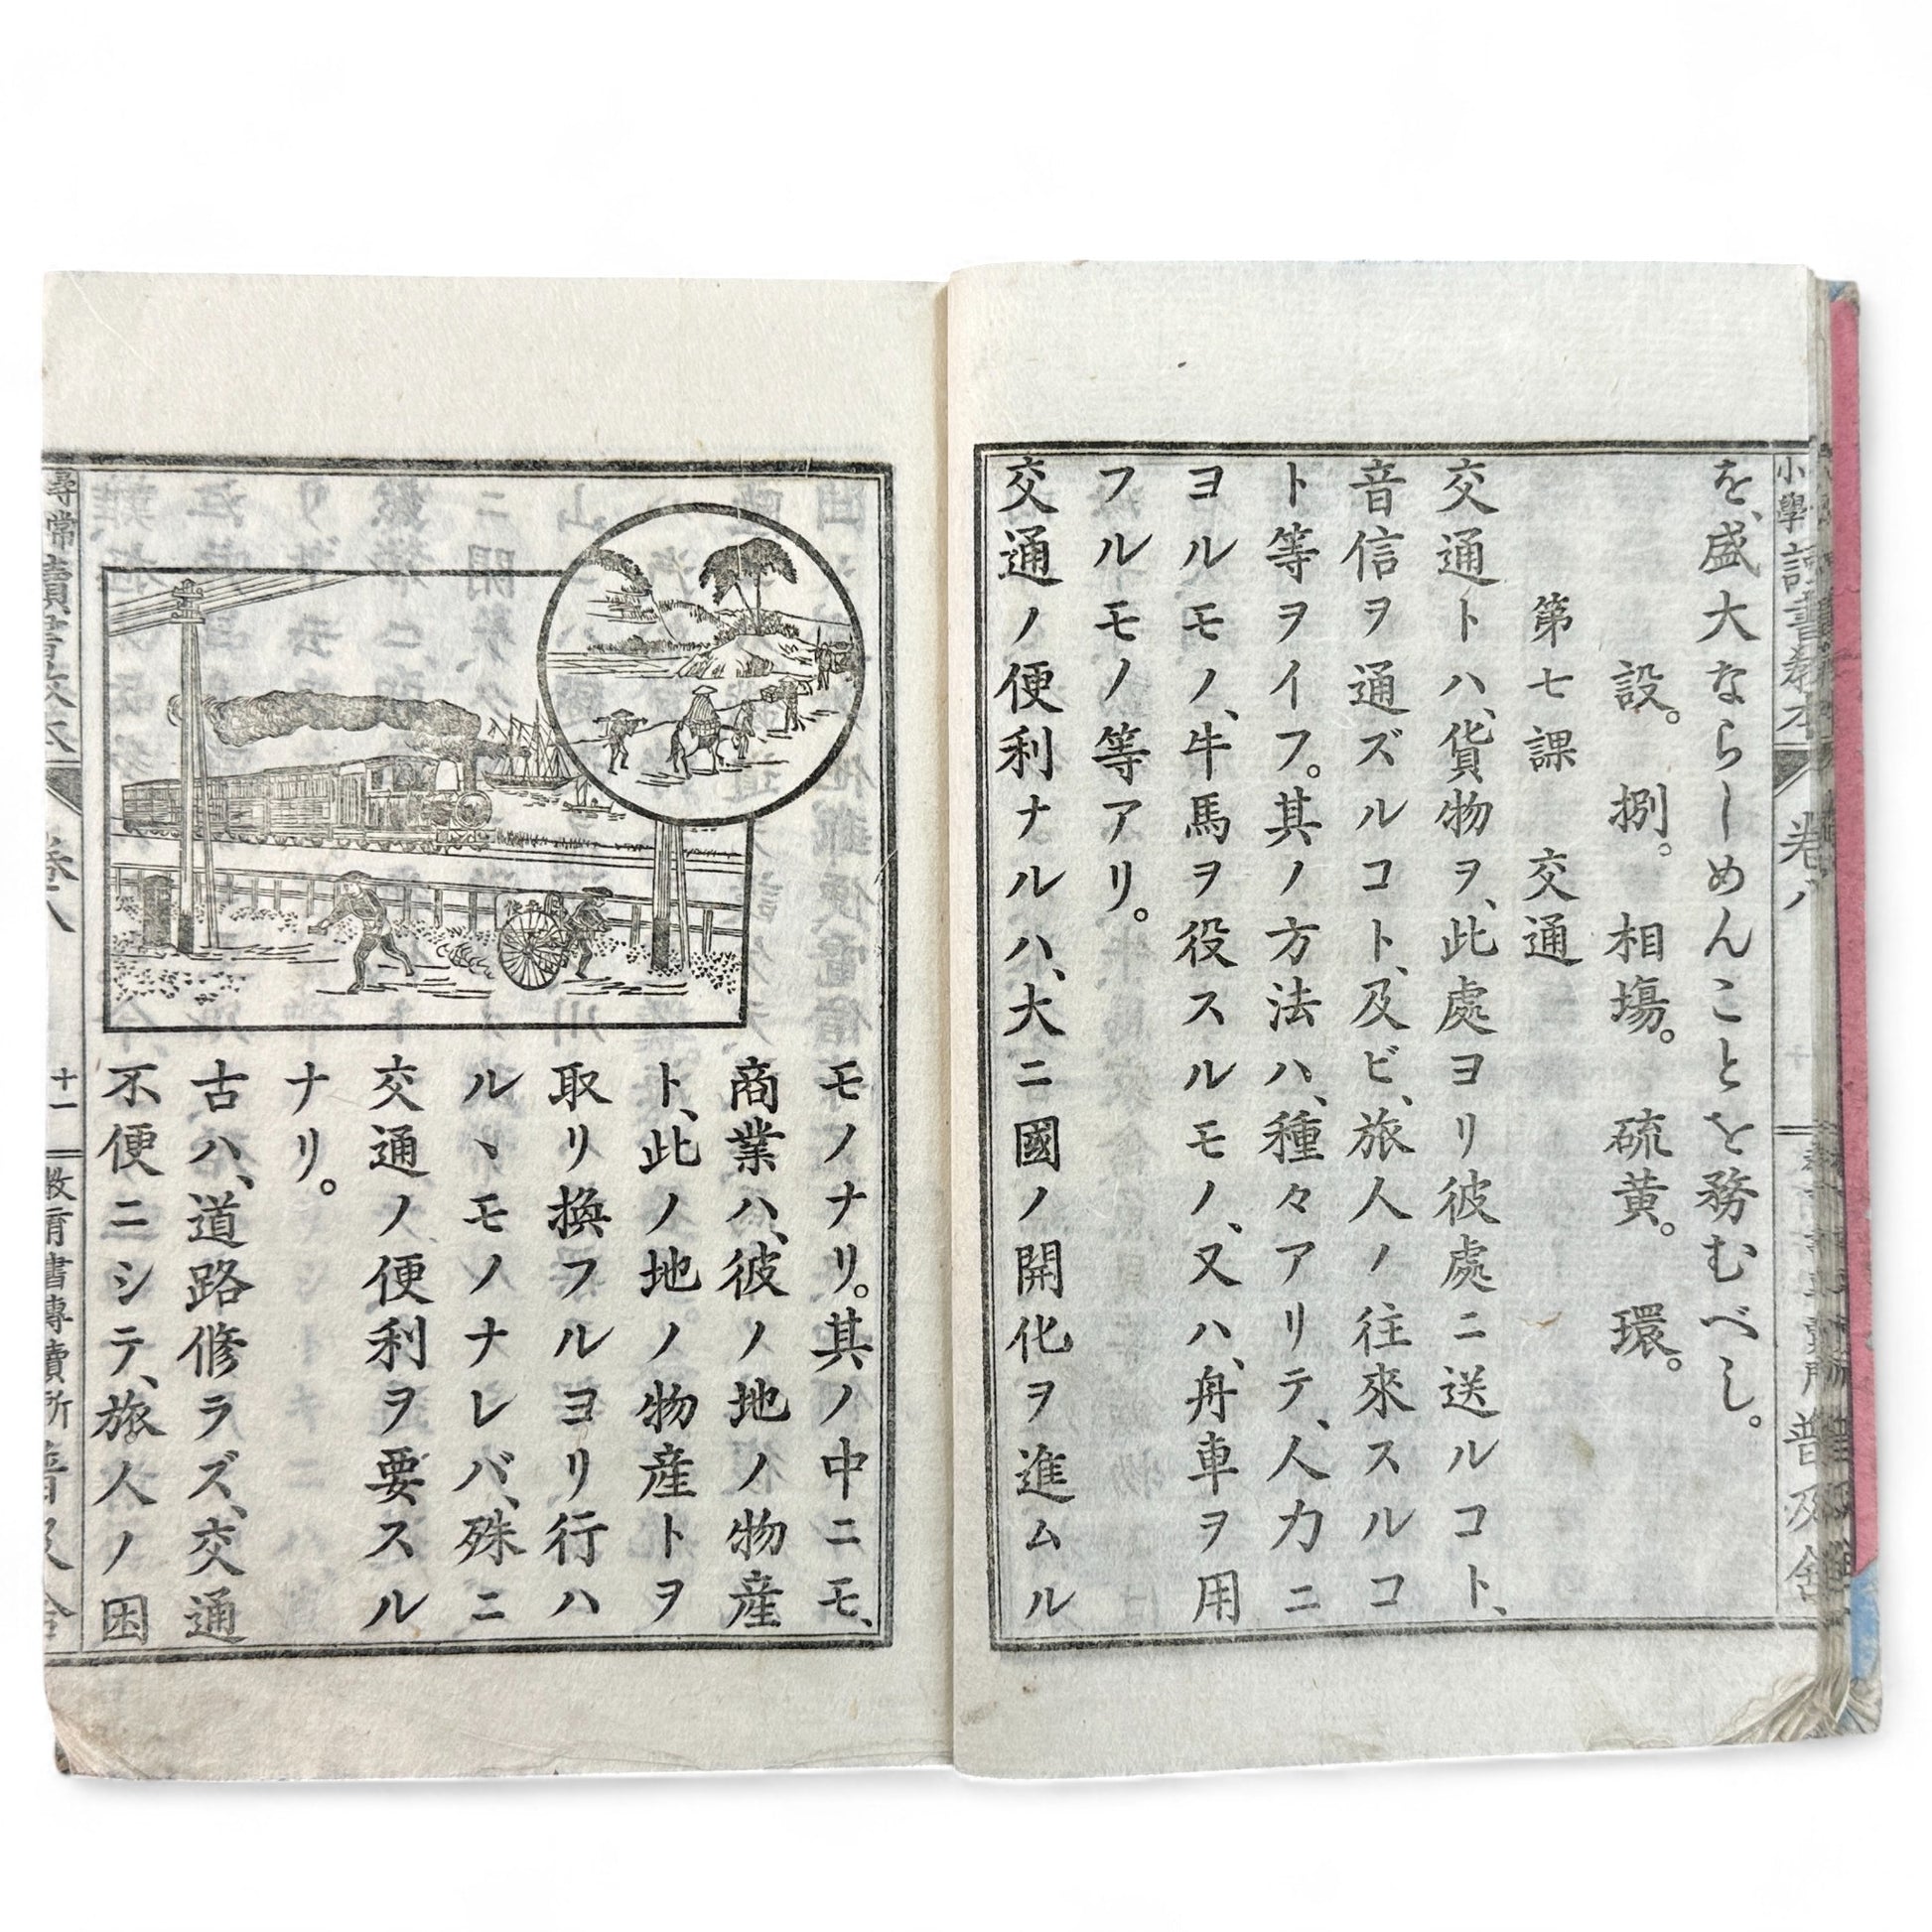 を、盛大ならしめんことを務むべし。
設。捌。相塲。硫黄。環。
第七課 交通
交通トハ、貨物ヲ、此處ヨリ彼處ニ送ルコト、
音信ヲ通ズルコト、及ビ、旅人ノ往來スルコ
ト等ヲイフ。其ノ方法ハ、種々アリテ、人力ニ
ヨルモノ、牛馬ヲ役スルモノ、又ハ、舟車ヲ用
フルモノ等アリ。
交通ノ便利ナルハ、大ニ國ノ開化ヲ進ムル
モノナリ。其ノ中ニモ、
商業ハ、彼ノ地ノ物産
ト、此ノ地ノ物産トヲ
取リ換フルヨリ行ハ
ルヽモノナレバ、殊ニ
交通ノ便利ヲ要スル
ナリ。
古ハ、道路修ラズ、交通
不便ニシテ、旅人ノ困
十一